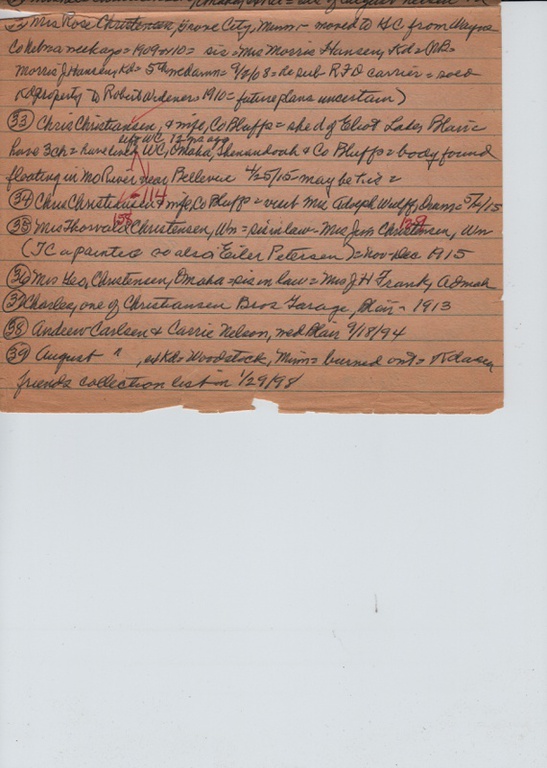 Mrs Rose Christensen, Grove City, Minn - moved to GC from Wayne
Co Nebr a week ago = 1909 or 10 = sis = Mrs Morris Hansen, Kd =
Morris J Hansen, Kd = 5th wed ann = 9/2/08 = he sub RFD carrier = sold
Kd property to Robert Wardener = 1910 = future plans uncertain)
(33) Chris Christiansen, & wife, Co Bluffs = she d of Eliot Lakes, Blair =
left WC 12 ms ago
have 3 ch = have lived WC, Omaha, Shenandoah & Co Bluffs = body found
floating in Mo River near Bellevue 4/25/15 may be his =
114
(34) Chris Christiansen & wife, Co Bluffs = visit Mrs Adolph Wulff, Dann = 5/2/15
(35) Mrs Thorvald Christensen, Wn = sis in law - Mrs Jens Christensen, Wn
(TC a painter so also Eiler Petersen) = Nov-Dec 1915
(36) Mrs Geo, Christensen, Omaha = sis in law = Mrs J H Frank, Admah
(37) Charles, one of Christiansen Bros Garage, Blair - 1913
(38) Andrew Carlsen & Carrie Nelson, wed Blair 9/18/94
(39) August " , ex Kd = Woodstock, Minn = burned out =
friends collection list in 1/29/98